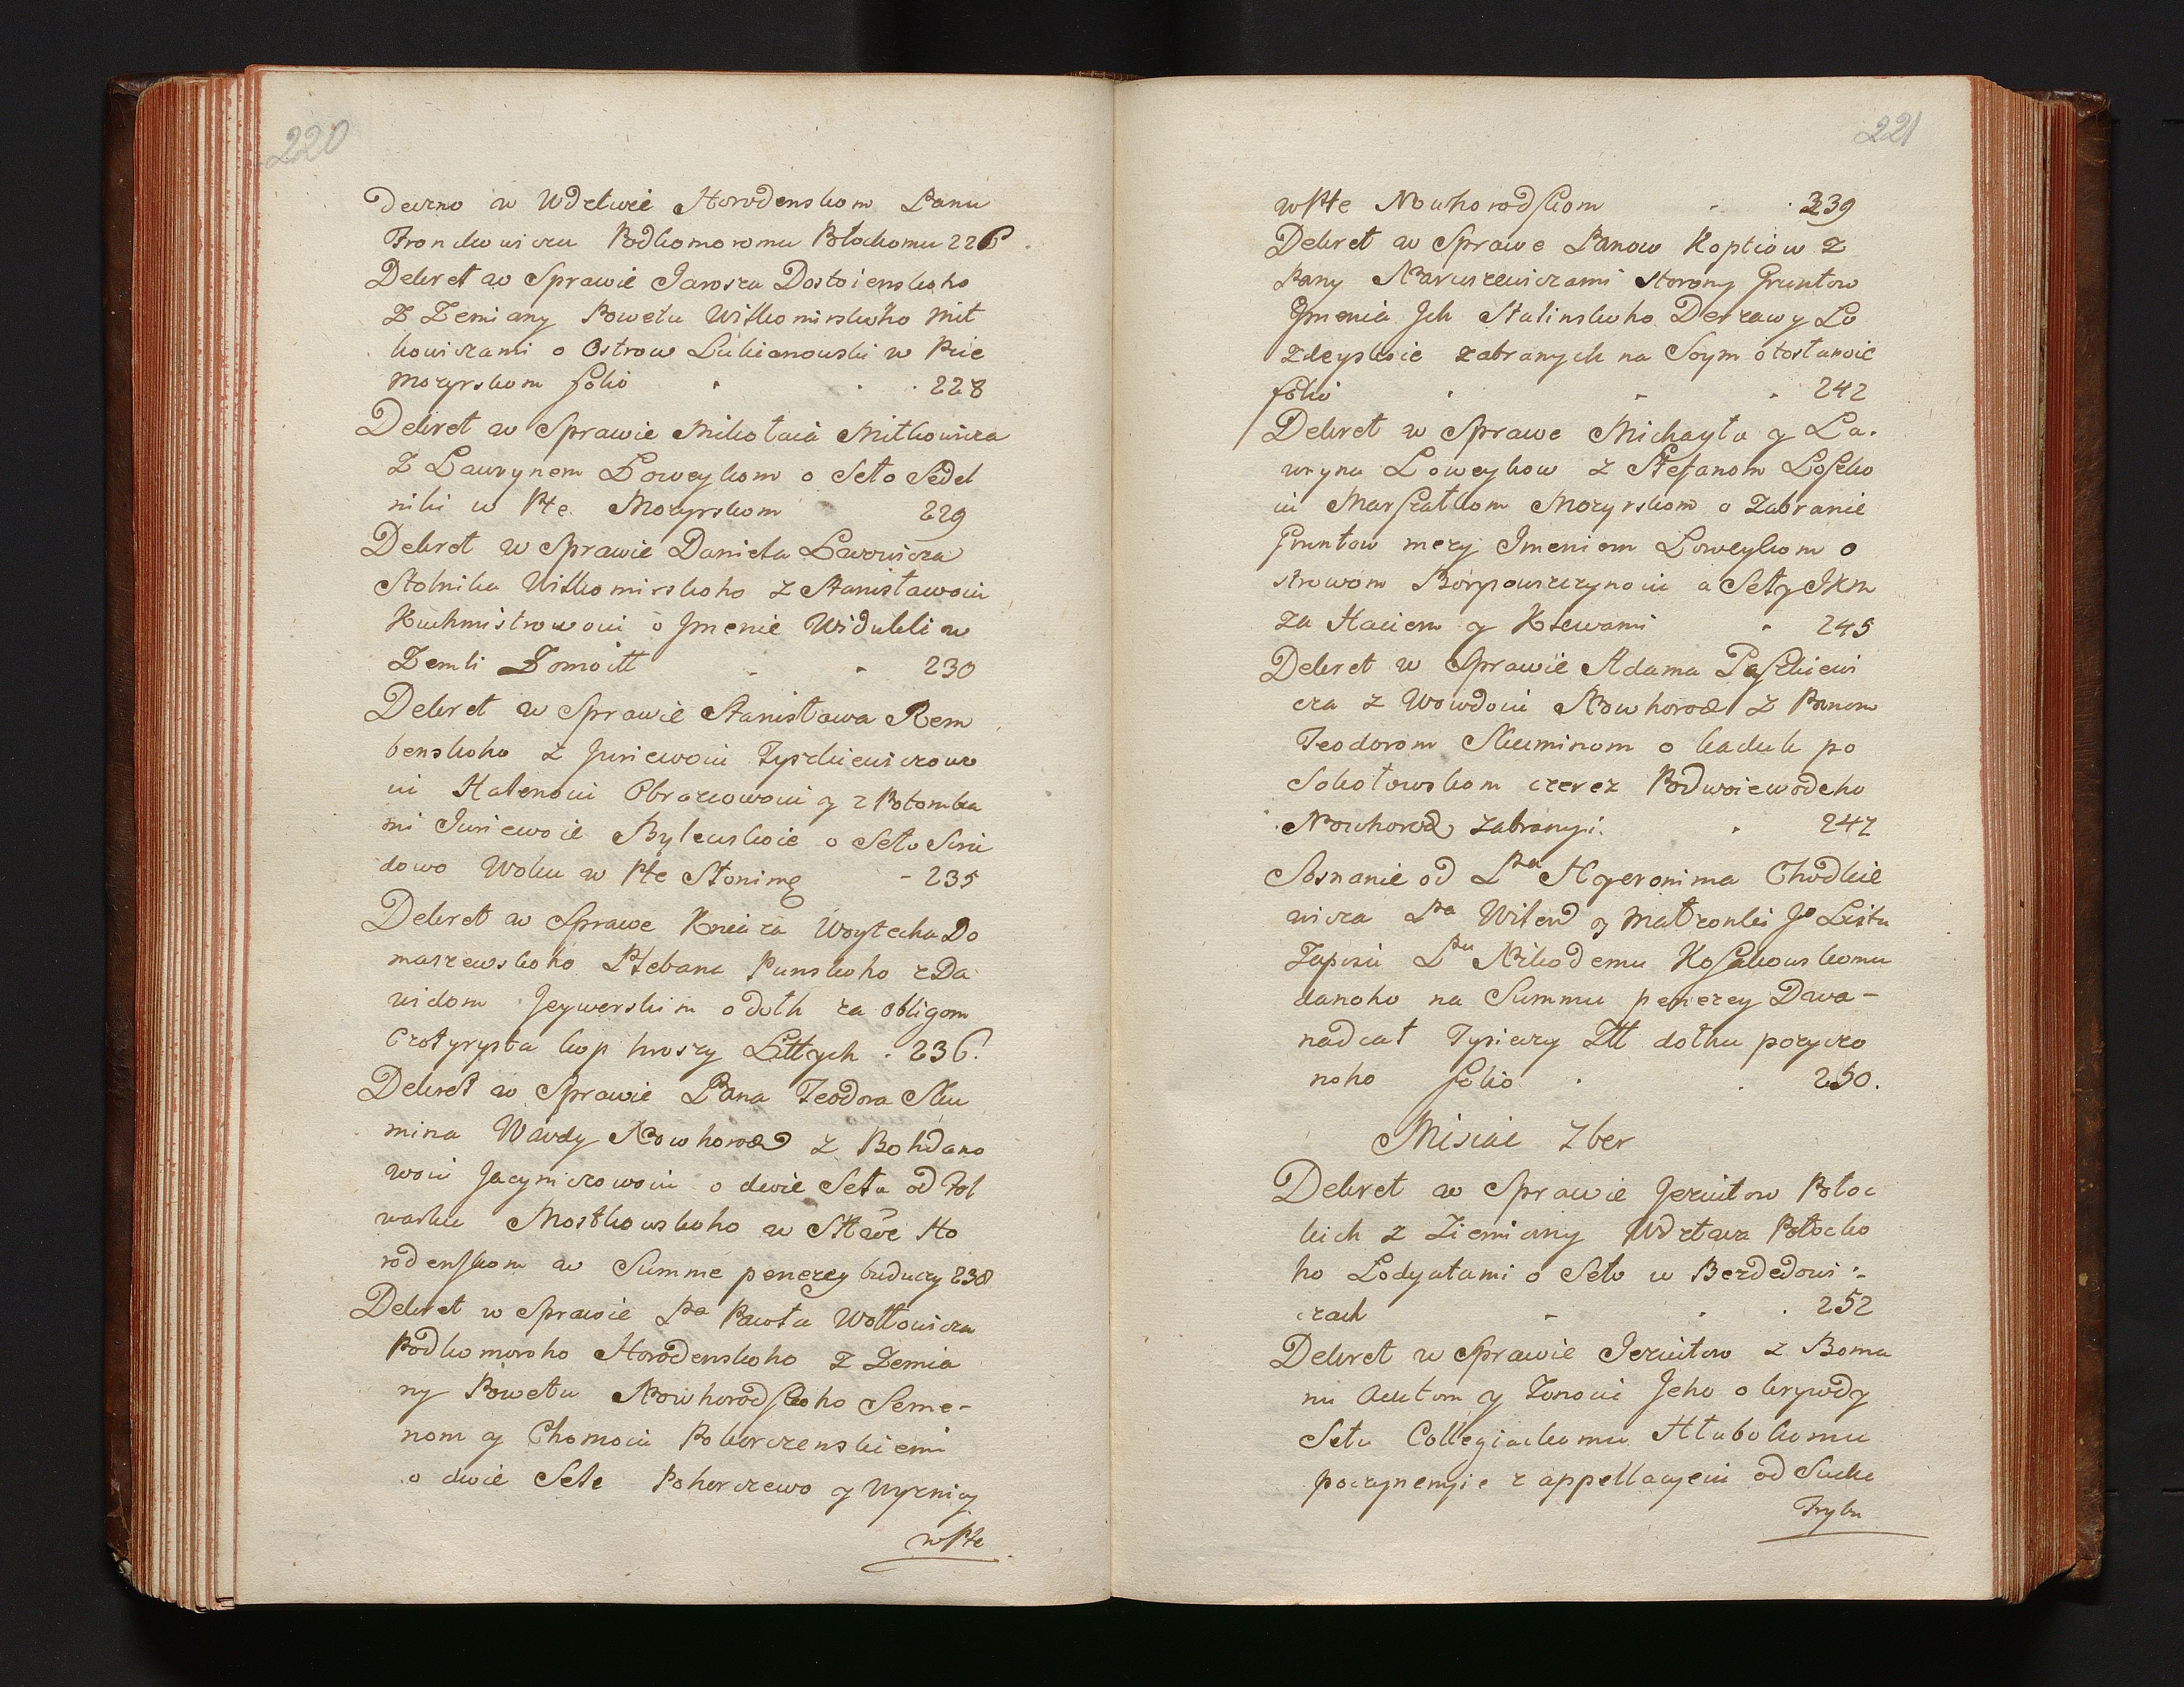 220
Dewno w Wdztwie Horodenskom Panu
Frondkowiczu Podkomoromu Połockomu 226
Dekret w Sprawie Jarosza Dostoienskoho
Z Zemiany Powetu Wiłkomirskoho Mit
kowiczami o Ostrow Lukianowski w Pcie
Mozyrskom folio 228
Dekret w Sprawie Mikołaia Mitkowicza
Z Lawrynem Łoweykom o Seło Sedel
niki w Pte Mozyrskom 229
Dekret w Sprawie Daniela Ławowicza
Stolnika Wiłkomirskoho z Stanisławoiu
Kuchmistrowoiu o Jmenie Widukli w
Zemli Żomoitt 230
Dekret w Sprawie Stanisława Rem
benskoho z Juriewoiu Tyszkiewiczowo
iu Halenoiu Obrazcowoiu y z Potomka
mi Juriewoie Bylewskoie o Seło Sini
dowo Woku w Pte Słonimę - 235
Dekret w Sprawe Kniaza Woytecha Do
maszewskoho Plebana Punskoho z Da
widom Jeywerskim o dołh za obligom
Czotyrysta kop hroszy Littych . 236.
Dekret w Sprawie Pana Teodora Sku
mina Wawdy Nowhorod z Bohdano
woiu Jacyniczowoiu o dwie Seła od Fol
warku Mostkowskoho w Sttwe Ho
rodenskom w Summe penezey buduczy 238
Dekret w Sprawie Pa Pawła Wołłowicza
Podkomorsho Horodenskoho Z Zemia
ny Powetu Nowhorodskoho Seme-
nom y Chomoiu Pokorczenskiemi
o dwie Sele Pohorczewo y Uyznicy
w Pte
221
w Pte Nowhorodskom 239
Dekret w Sprawe Panow Koptiow z
Pany Naruszewiczami storony Gruntow
Jmenia Jch Stalinskoho Derzawy Lo
zdeyskoie zabranych na Soym otosłanoie
folio 242
Dekret w Sprawe Michayła y Ła-
wryna Łoweykow z Stefanom Łosko
iu Marszałkom Mozyrskom o Zabranie
Gruntow mezy Jmeniem Łoweykom o
strowom Borysowszczynoiu a Seły JKM
Za Haciem y Ktewami 245
Dekret w Sprawie Adama Paszkiewi
cza z Wowdoiu Nowhorod z Panom
Teodorom Skuminom o kaduk po
Sokołowskom czerez Podwoiewodeho
Nowhorod zabranyi. 247
Sosnanie od Pna Hyeronima Chodkie
wicza Pa Wilend y Małzonki Jo Listu
Zapisu Pu Nikodemu Kossakowskomu
danoho na Summu penezey Dwa-
nadcat Tysiaczy Zll dołhu pozyczo
noho folio 250.
Misiac 7ber
Dekret w Sprawie Jezuitow Połoc
kich z Ziemiany Wdztwa Połocko
ho Lodyatami o Seło w Bezdedowi:-
czach 252
Dekret w Sprawie Jezuitow z Roma
nu y Zonoiu Jeho o krywdy
Sełu Collegiackomu Hłubokomu
poczynenyie z appellacyeiu od Sudu
Trybu